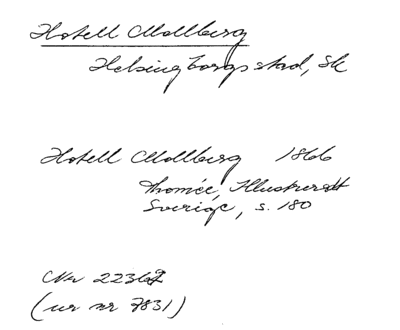 Hotell Mollberg
Helsingborgs stad, Sk
Hotell Mollberg 1866
Thomée, Illustreradt
Sverige, s. 180
Nr 22362
(ur nr 7831)